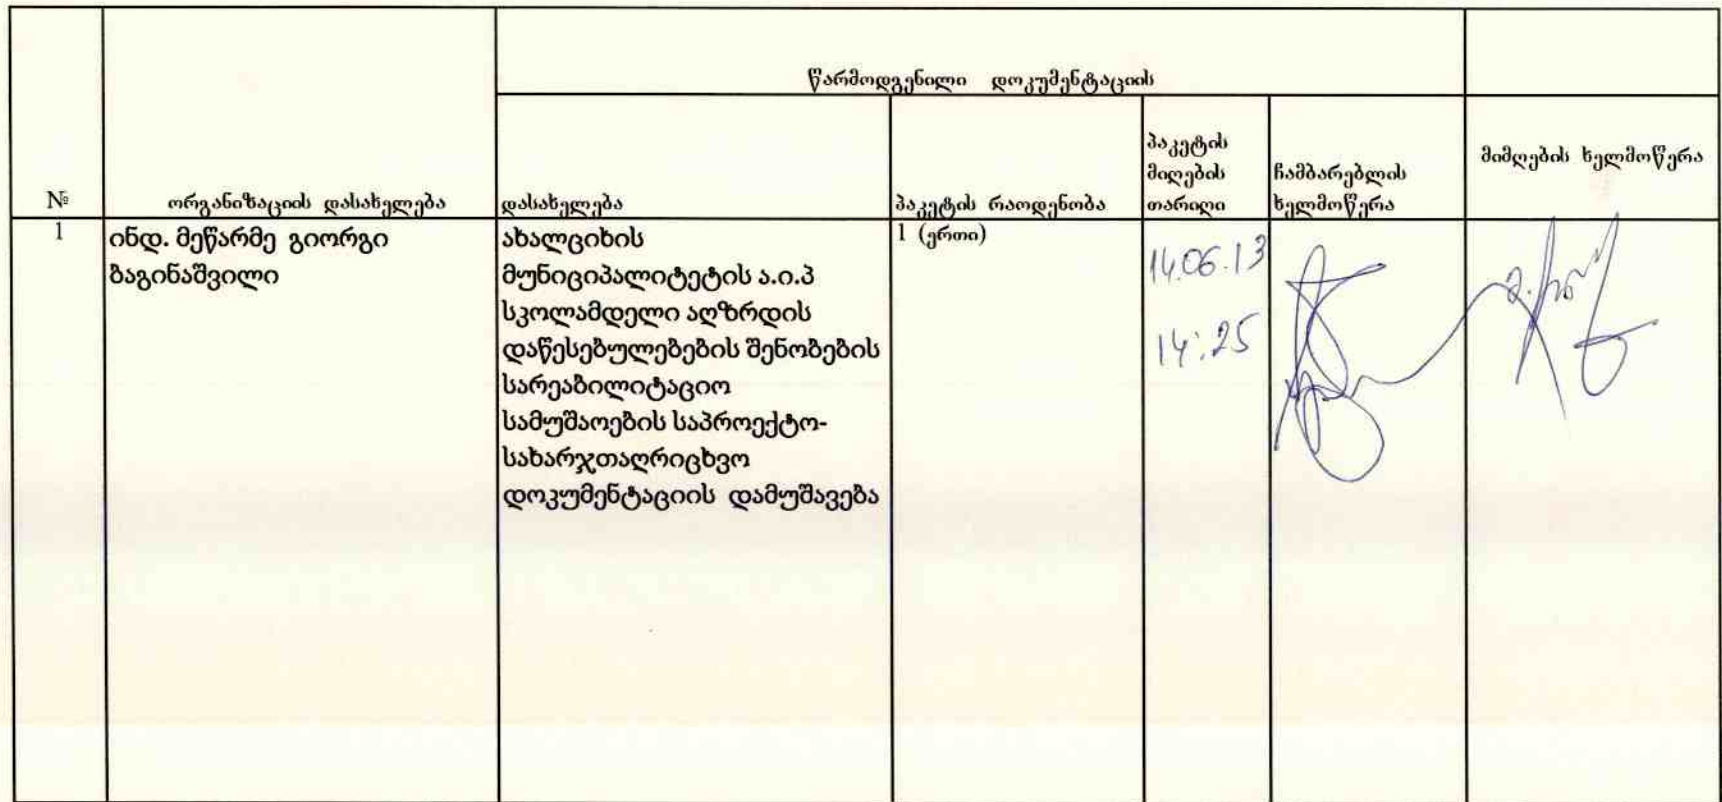 წარმოდგენილი დოკუმენტაციის
№
ორგანიზაციის დასახელება
დასახელება
პაკეტის რაოდენობა
პაკეტის
მიღების
თარიღი
ჩამბარებლის
ხელმოწერა
მიმღების ხელმოწერა
1
ინდ. მეწარმე გიორგი
ბაგინაშვილი
ახალციხის
მუნიციპალიტეტის ა.ი.პ
სკოლამდელი აღზრდის
დაწესებულებების შენობების
სარეაბილიტაციო
სამუშაოების საპროექტო-
სახარჯთაღრიცხვო
დოკუმენტაციის დამუშავება
1 (ერთი)
14.06.13
14:25